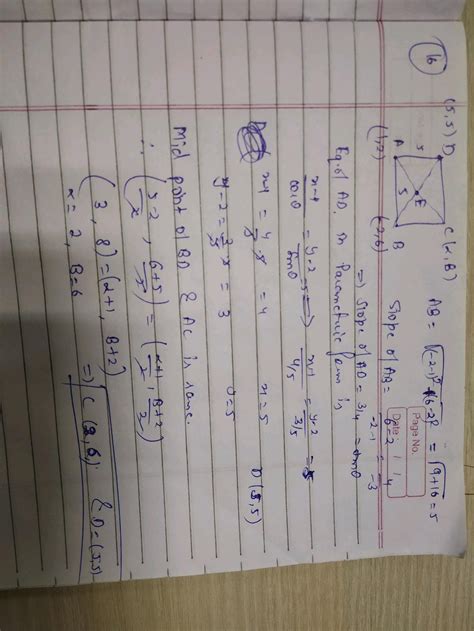 Page No.
Date / /
16
(5,5) D
C (α, β)
5
E
5
A
B
(1,2)
(-2,6)
AB = √(-2-1)² + (6-2)² = √9+16 = 5
Slope of AB = 6-2 / -2-1 = 4 / -3
⇒ Slope of AD = 3/4 = tanθ
Eq. of AD in Parametric form is
x-1 / cosθ = y-2 / sinθ ⇒ x-1 / 4/5 = y-2 / 3/5 = 5
x-1 = 4/5 · 5 = 4 x = 5 D (5,5)
y-2 = 3/5 · 5 = 3 y = 5
Mid point of BD & AC is same
∴ (5-2 / 2, 6+5 / 2) = (α+1 / 2, β+2 / 2)
(3, 8) = (α+1, β+2)
α = 2, β = 6 ⇒ C (2,6) & D = (5,5)